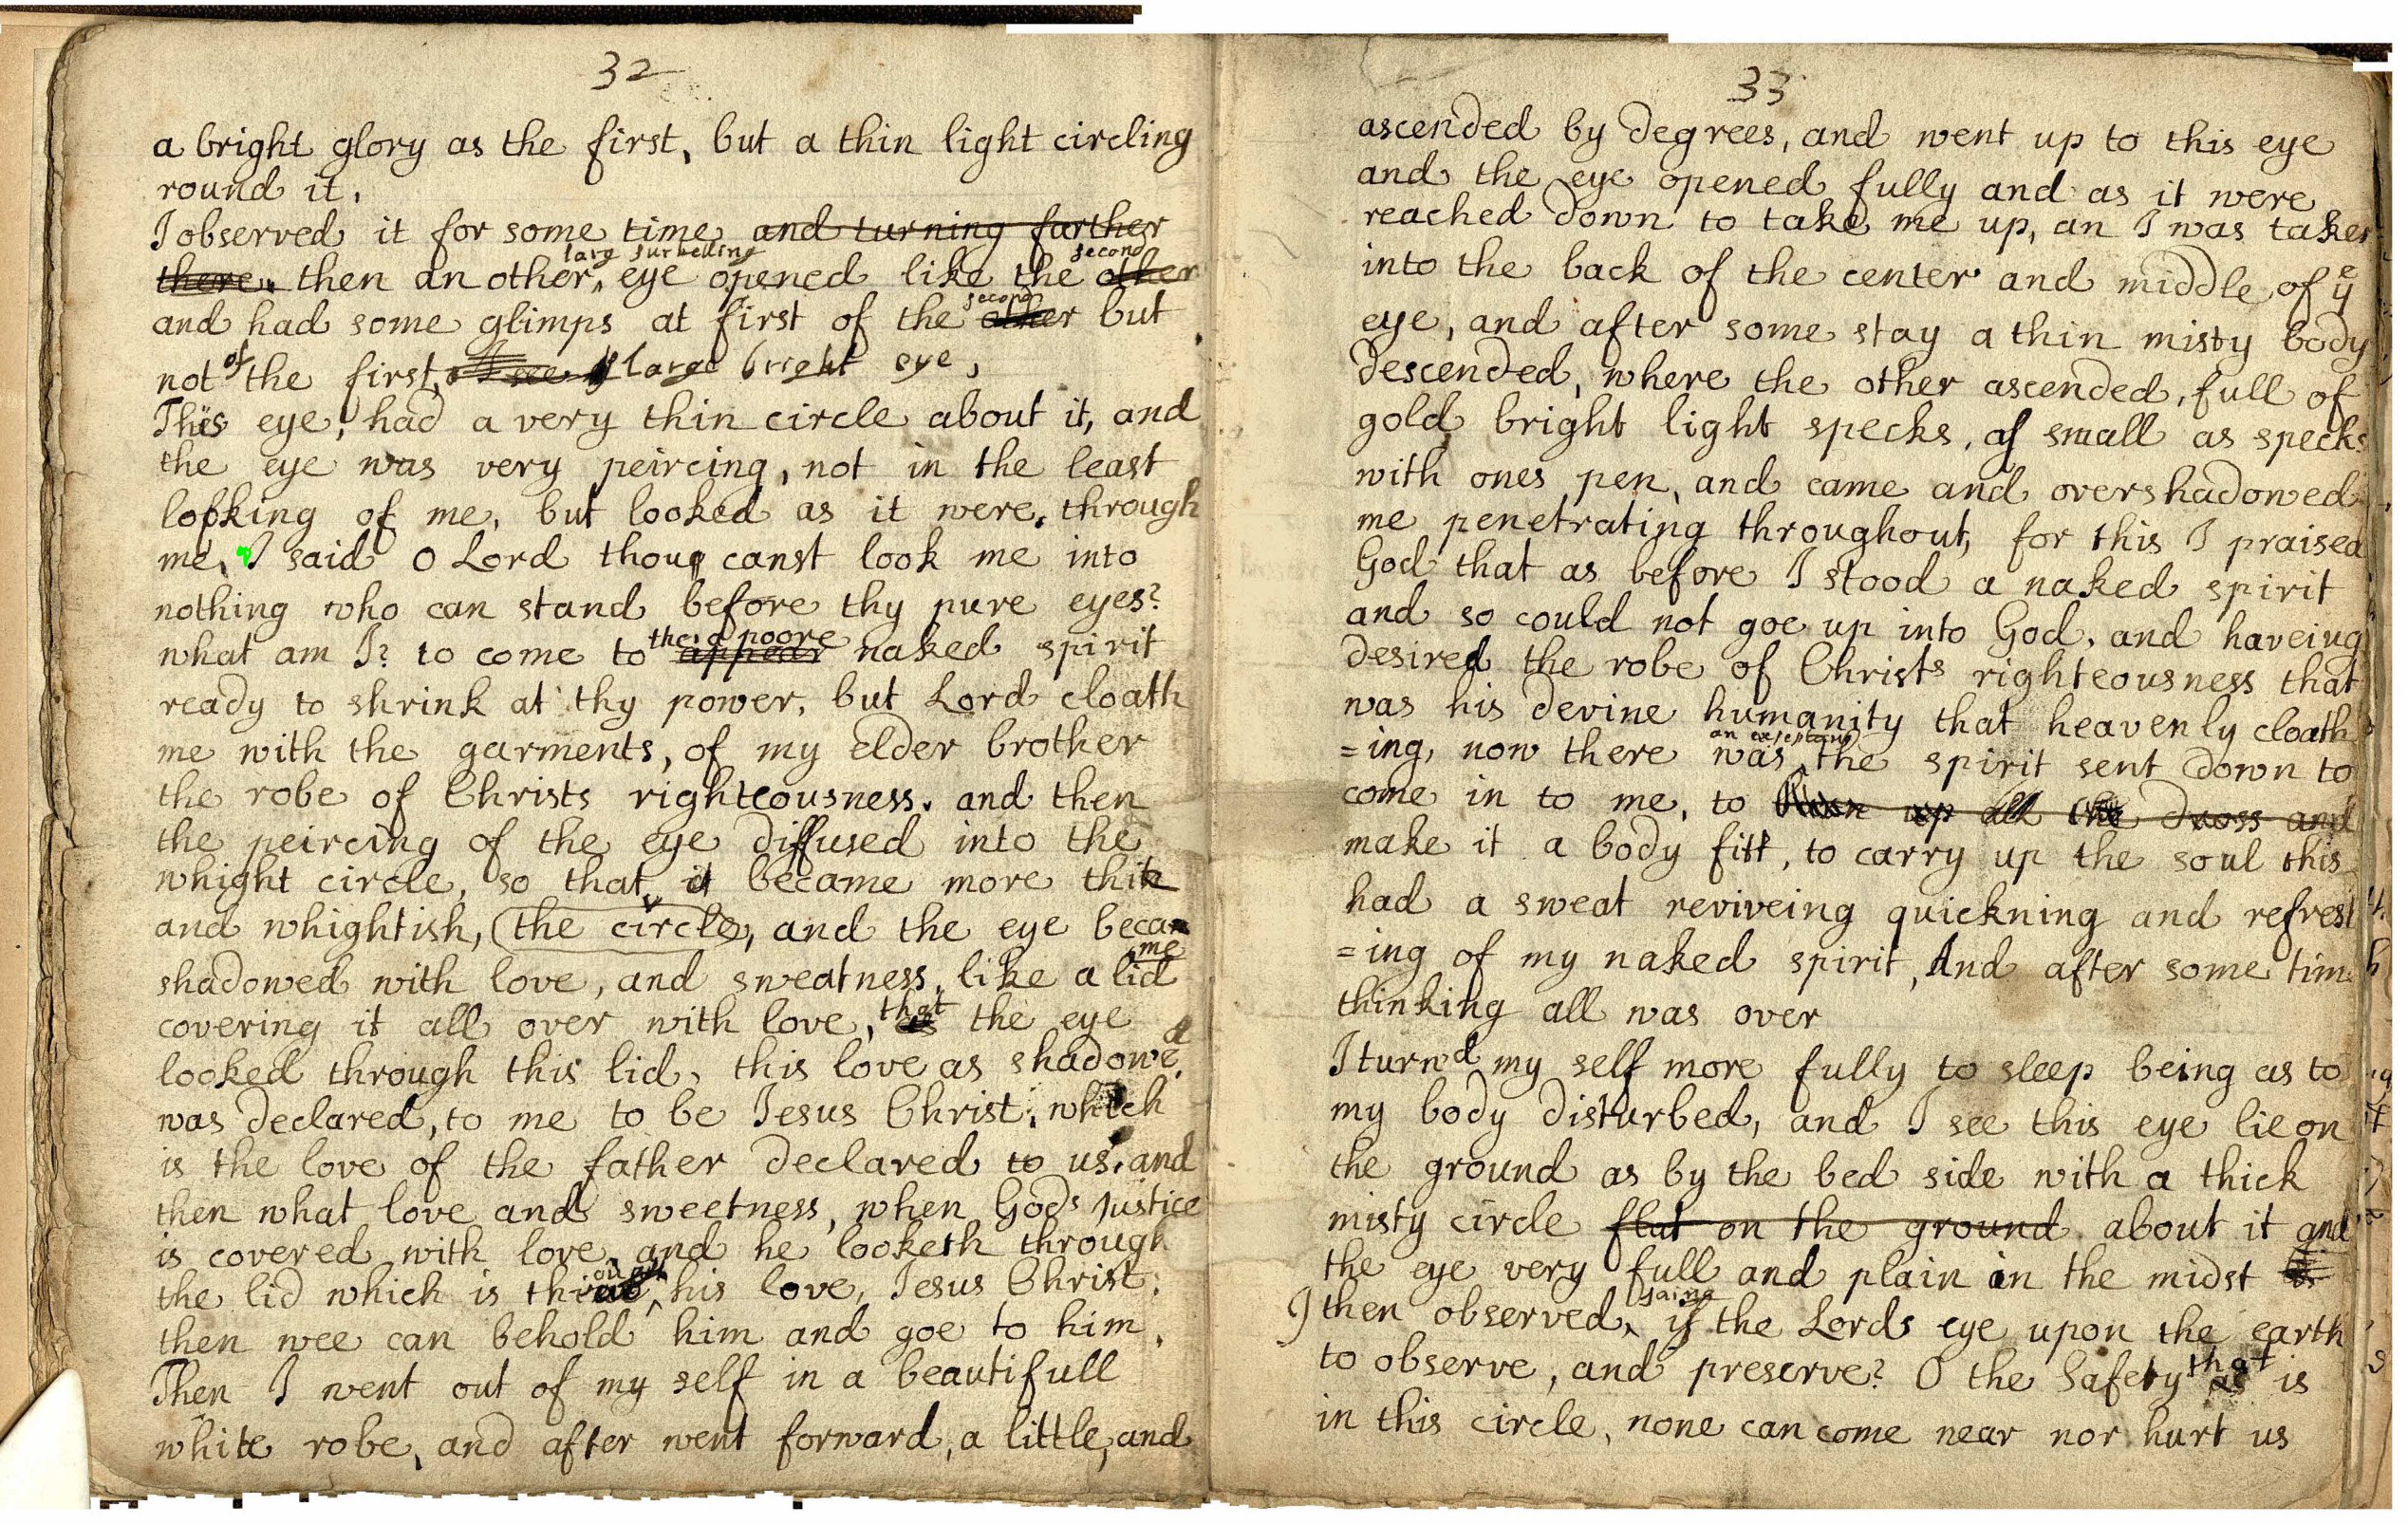 32
a bright glory as the first, but a thin light circling
round it.
I observed it for some time and turning further
there. then an other large eye opened like the second other
and had some glimps at first of the second other but
not of the first, I see large bright eye,
This eye, had a very thin circle about it, and
the eye was very peircing, not in the least
looking of me, but looked as it were, through
me, I said O Lord thou canst look me into
nothing who can stand before thy pure eyes?
what am I? to come to thee a poore appear naked spirit
ready to shrink at thy power, but Lord cloath
me with the garments, of my elder brother
the robe of Christs righteousness. and then
the peircing of the eye diffused into the
whight circle, so that it became more thik
and whightish, (the circle), and the eye became
shadowed with love, and sweatness, like a lid
covering it all over with love, that the eye
looked through this lid, this love as shadowed
was declared, to me to be Iesus Christ: which
is the love of the father declared to us, and
then what love and sweetness, when Gods justice
is covered with love, and he looketh through
the lid which is his love, Iesus Christ:
then wee can behold him and goe to him.
Then I went out of my self in a beautifull
white robe, and after went forward, a little, and
33
ascended by degrees, and went up to this eye
and the eye opened fully and as it were
reached down to take me up, an I was taken
into the back of the center and middle of ye
eye, and after some stay a thin misty body
descended, where the other ascended, full of
gold bright light specks, as small as specks
with ones pen, and came and overshadowed
me penetrating throughout, for this I praised
God that as before I stood a naked spirit
and so could not goe up into God, and haveing
desired the robe of Christs righteousness that
was his devine humanity that heavenly cloath
=ing, now there was the spirit sent down to
come in to me, to up all the dross and
make it a body fitt, to carry up the soul this
had a sweat reviveing quickning and refresh
=ing of my naked spirit, And after some time
thinking all was over
I turnd my self more fully to sleep being as to
my body disturbed, and I see this eye lie on
the ground as by the bed side with a thick
misty circle flat on the ground about it and
the eye very full and plain in the midst
I then observed, saing if the Lords eye upon the earth
to observe, and preserve? O the Safety that is
in this circle, none can come near nor hurt us